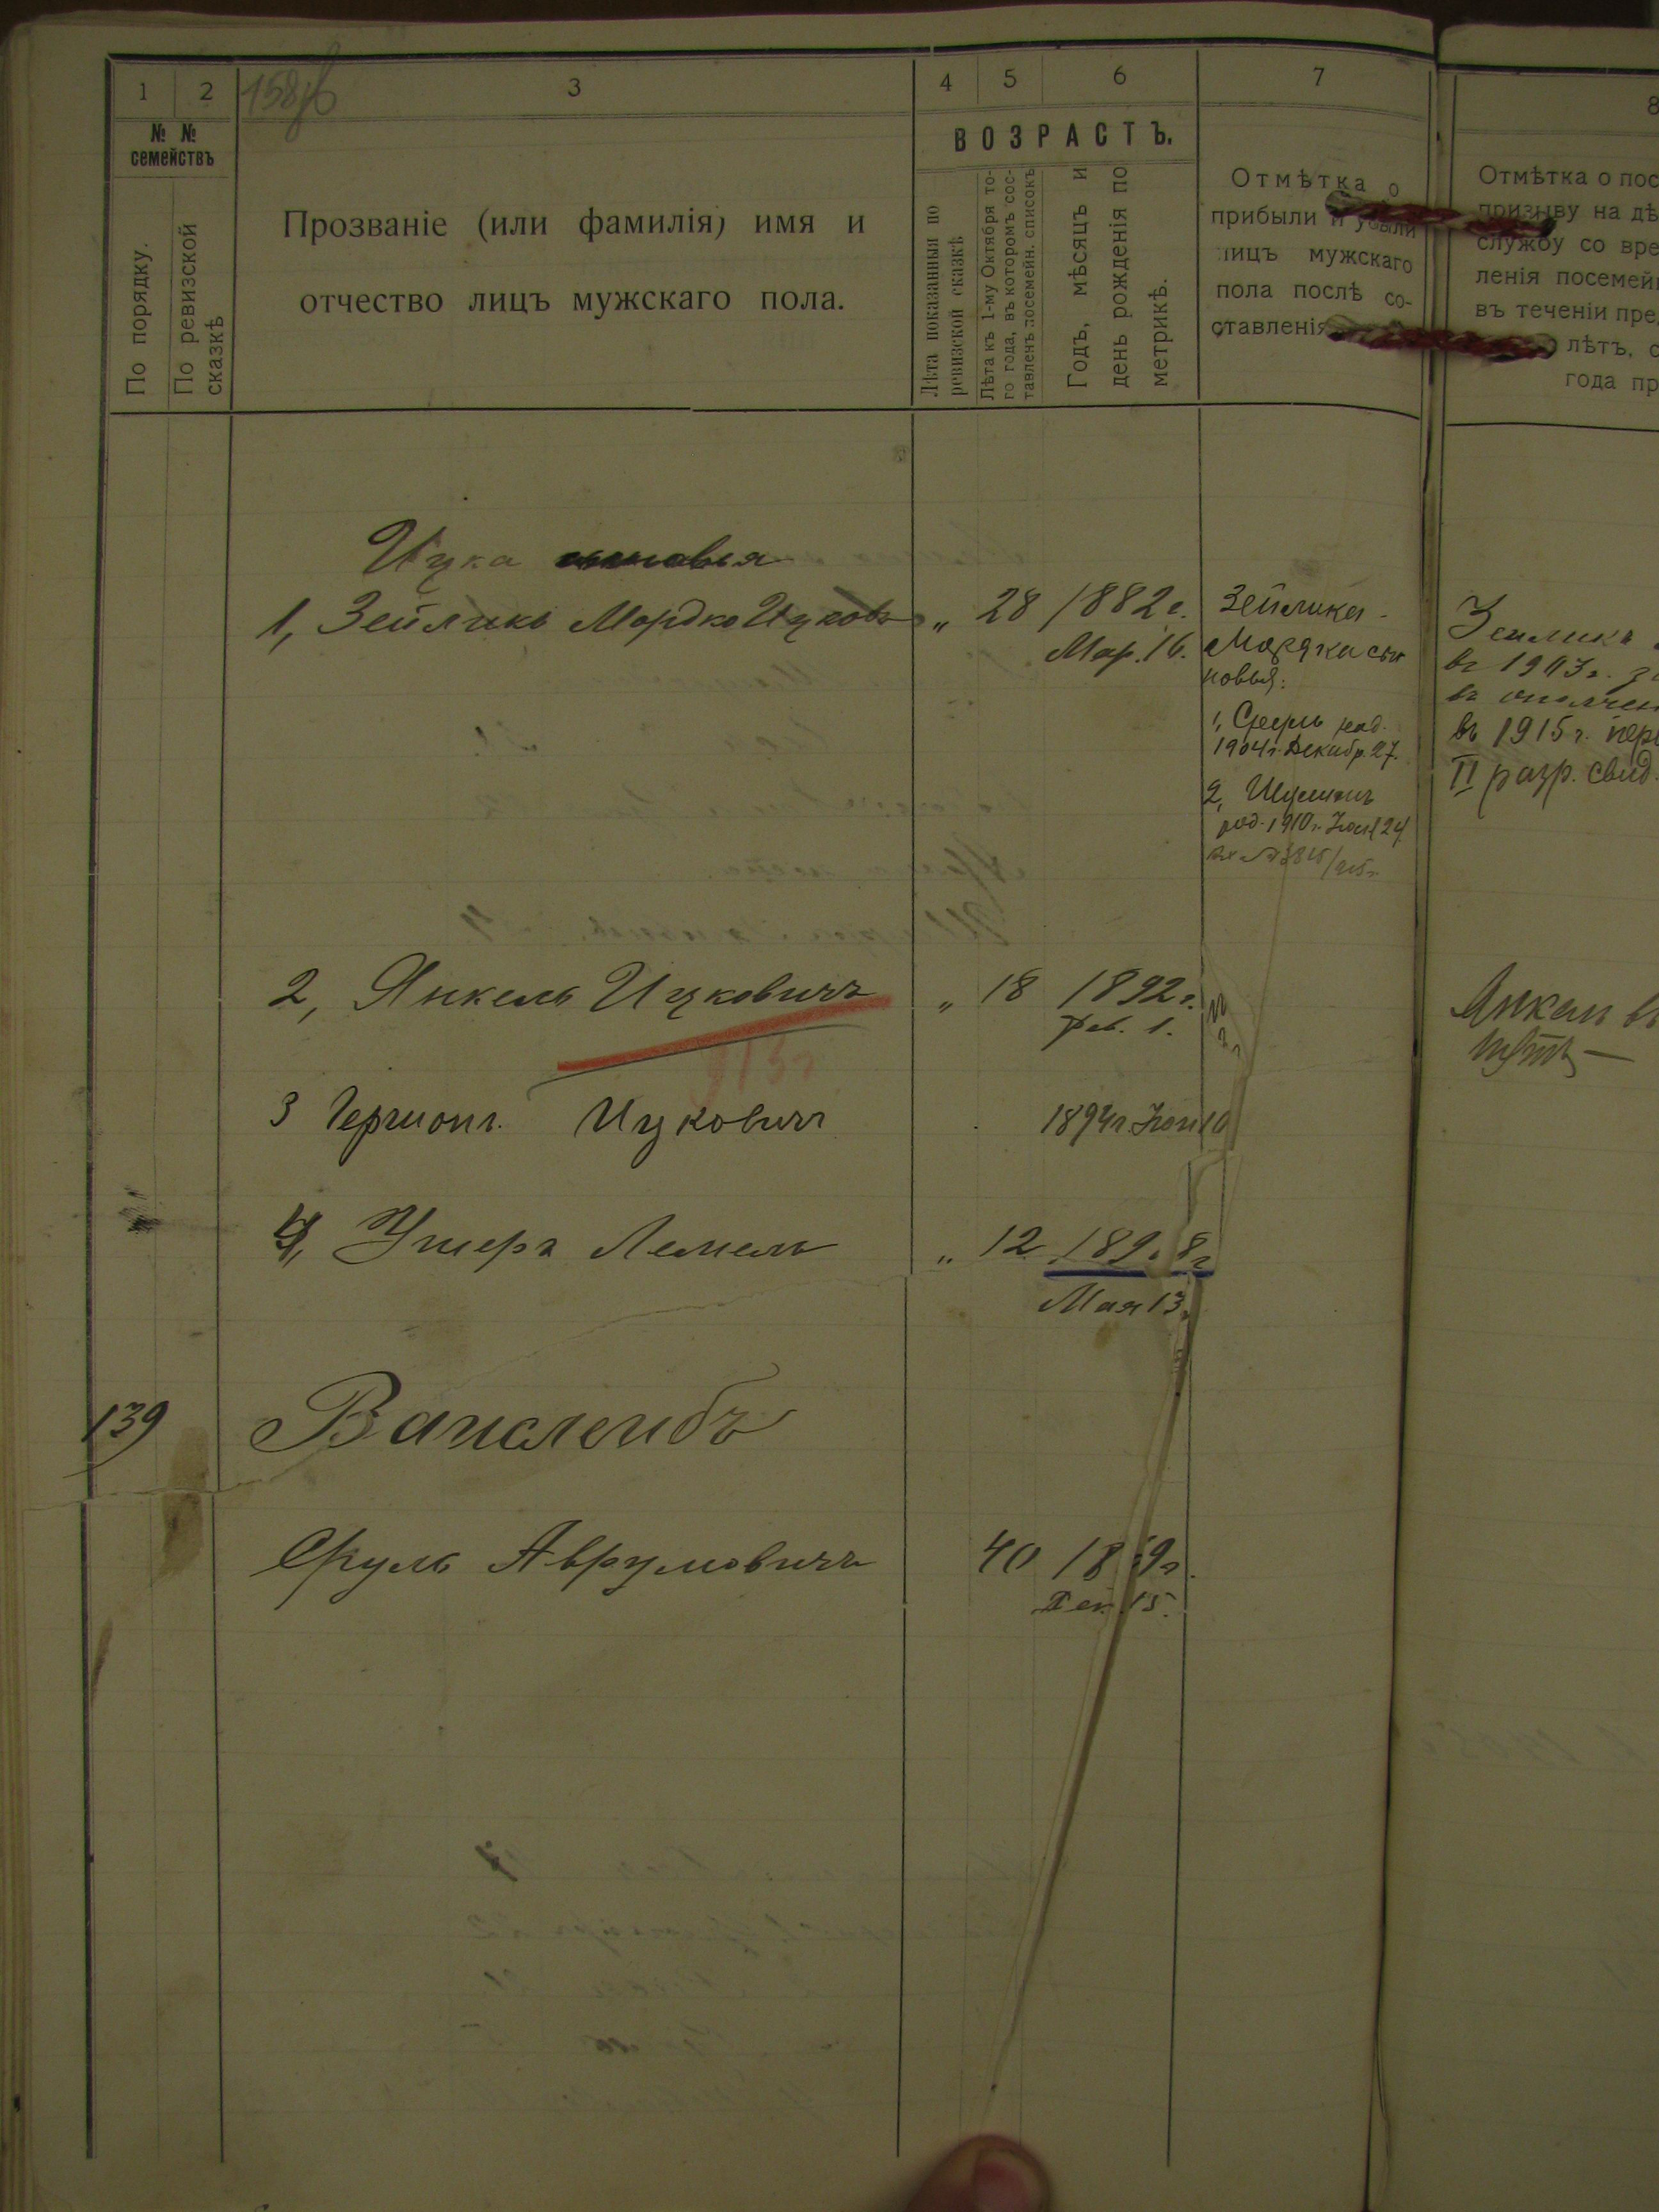 1 2 3 4 5 6 7 8
158
№ №
семействъ
По порядку.
По ревизской
сказкѣ
Прозваніе (или фамилія) имя и
отчество лицъ мужскаго пола.
ВОЗРАСТЪ.
Лѣта показанныя по
ревизской сказкѣ
Лѣта къ 1-му Октября то-
го года, въ которомъ сос-
тавленъ посемейн. списокъ
Годъ, мѣсяцъ и
день рожденія по
метрикѣ.
Отмѣтка о
прибыли и убыли
лицъ мужскаго
пола послѣ со-
ставленія
Отмѣтка о пос
призыву на дѣ
службу со вре
ленія посемей
въ теченіи пре
лѣтъ, с
года пр
Ицка сыновья
1, Зейликъ Мордко Ицковъ " 28 1882 г.
Мар. 16.
Зейлика-
Мордка сы
новья:
1, Сруль род.
1904 г. Декабр. 27.
2, Шулимъ
род. 1910 г. Іюля 24
Зейликъ
въ 1903 г. з
въ ополчен
въ 1915 г. пер
II разр. свид.
2, Янкель Ицковичъ " 18 1892 г.
Фев. 1.
Янкель въ
913 г
3 Гершонъ Ицковичъ 1894 г. Іюн 10
4, Ушеръ Лемель " 12 1898 г
Мая 13.
139 Вайслейбъ
Сруль Аврумовичъ 40 18 9 г.
Дек. 15.